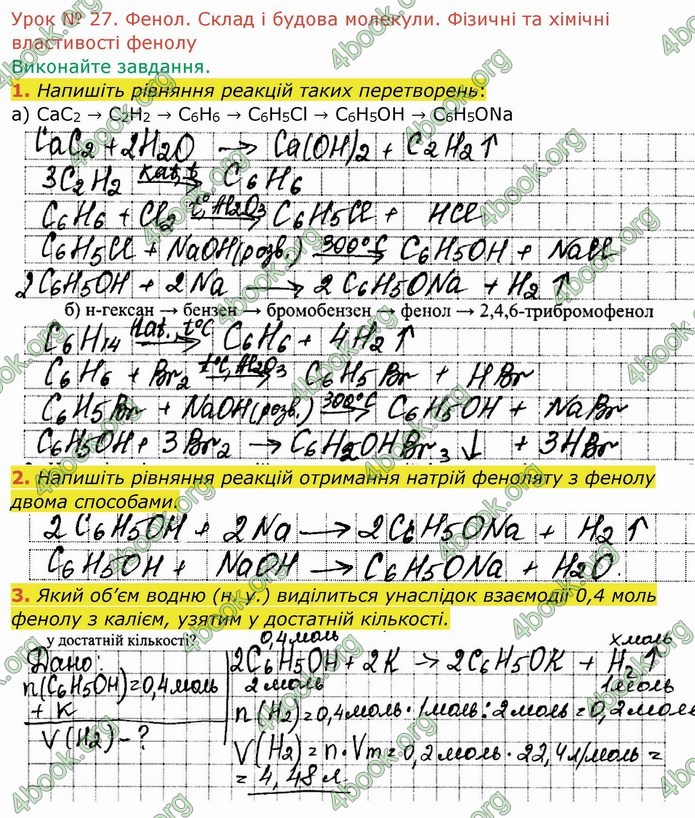 Урок № 27. Фенол. Склад і будова молекули. Фізичні та хімічні
властивості фенолу
Виконайте завдання.
1. Напишіть рівняння реакцій таких перетворень:
а) CaC₂ → C₂H₂ → C₆H₆ → C₆H₅Cl → C₆H₅OH → C₆H₅ONa
CaC₂ + 2H₂O → Ca(OH)₂ + C₂H₂↑
3C₂H₂ kat, t → C₆H₆
C₆H₆ + Cl₂ t°, Al₂O₃ → C₆H₅Cl + HCl
C₆H₅Cl + NaOH(розв.) 300°C → C₆H₅OH + NaCl
2C₆H₅OH + 2Na → 2C₆H₅ONa + H₂↑
б) н-гексан → бензен → бромобензен → фенол → 2,4,6-трибромофенол
C₆H₁₄ kat., t°C → C₆H₆ + 4H₂↑
C₆H₆ + Br₂ t°C, Al₂O₃ → C₆H₅Br + HBr
C₆H₅Br + NaOH(розв.) 300°C → C₆H₅OH + NaBr
C₆H₅OH + 3Br₂ → C₆H₂OHBr₃↓ + 3HBr
2. Напишіть рівняння реакцій отримання натрій феноляту з фенолу
двома способами.
2C₆H₅OH + 2Na → 2C₆H₅ONa + H₂↑
C₆H₅OH + NaOH → C₆H₅ONa + H₂O.
3. Який об'єм водню (н. у.) виділиться унаслідок взаємодії 0,4 моль
фенолу з калієм, узятим у достатній кількості.
у достатній кількості?
0,4 моль x моль
Дано: 2C₆H₅OH + 2K → 2C₆H₅OK + H₂↑
n(C₆H₅OH)=0,4 моль 2 моль 1 моль
+ K n(H₂)=0,4 моль · 1 моль : 2 моль = 0,2 моль
V(H₂) - ? V(H₂) = n · Vm = 0,2 моль · 22,4 л/моль =
= 4,48 л
4book.org